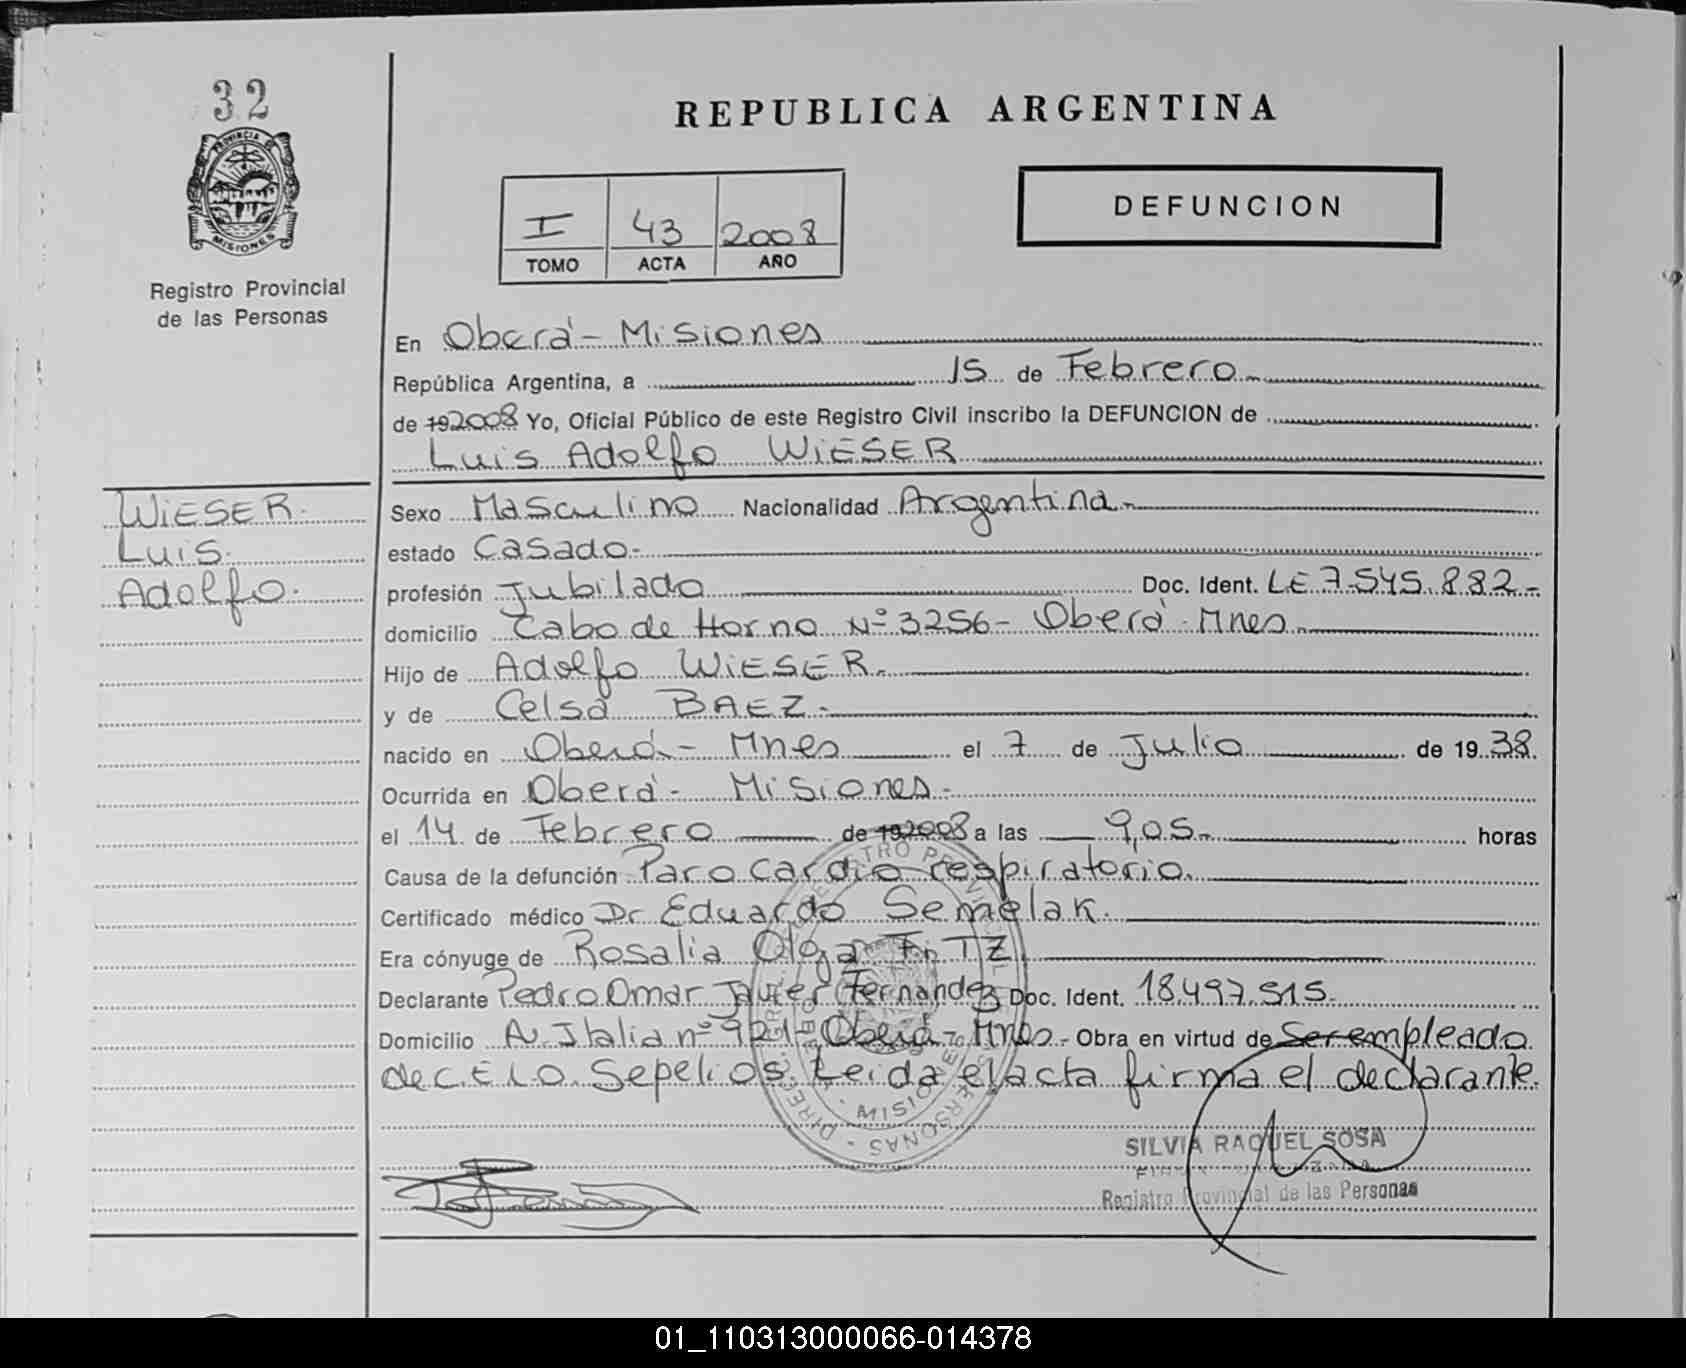 32
PROVINCIA DE
MISIONES
Registro Provincial
de las Personas
REPUBLICA ARGENTINA
I 43 2008
TOMO ACTA AÑO
DEFUNCION
En Oberá - Misiones
República Argentina, a 15 de Febrero
de 192008 Yo, Oficial Público de este Registro Civil inscribo la DEFUNCION de
Luis Adolfo WIESER
WIESER
Luis
Adolfo.
Sexo Masculino Nacionalidad Argentina.-
estado Casado.-
profesión Jubilado Doc. Ident. LE 7.545.882.-
domicilio Cabo de Horno Nº 3256 - Oberá - Mnes.
Hijo de Adolfo WIESER.-
y de Celsa BAEZ.-
nacido en Oberá - Mnes el 7 de Julio de 19 38.
Ocurrida en Oberá - Misiones.-
el 14 de Febrero de 192008 a las 9,05.- horas
Causa de la defunción Paro Cardio respiratorio.
Certificado médico Dr. Eduardo Semelak.
Era cónyuge de Rosalia Olga FriTZ
Declarante Pedro Omar Javier Fernandez Doc. Ident. 18.497.515.
Domicilio Av. Italia nº 921 - Oberá - Mnes.- Obra en virtud de Ser empleado
de C.E.L.O. Sepelios. Leida el acta firma el declarante.
MISIONES
SILVIA RAQUEL SOSA
Registro Provincial de las Personas
01_110313000066-014378